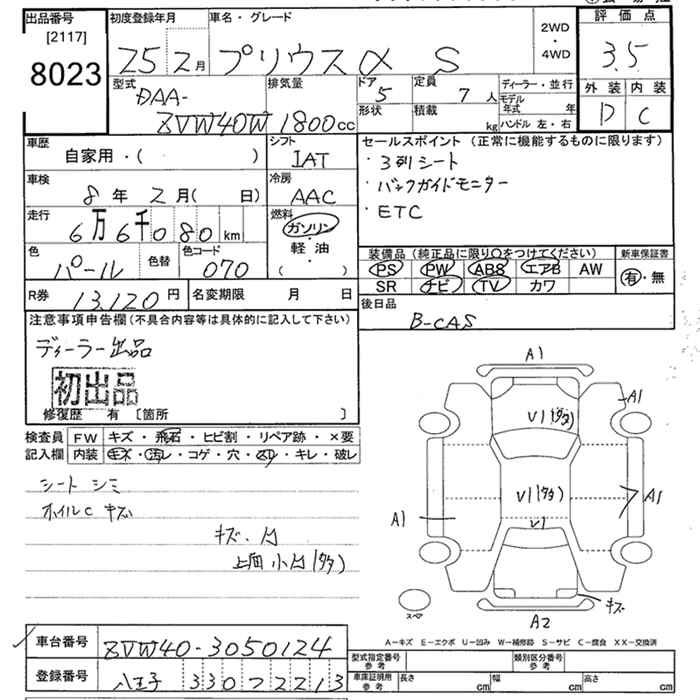 出品番号
[2117]
8023
初度登録年月
25 2月
車名・グレード
プリウスα S
2WD
・
4WD
評価点
3.5
外装 内装
D C
型式
DAA-
ZVW40W
排気量
1800cc
ドア
5
形状
定員
7人
積載
kg
ディーラー・並行
モデル年式 年
ハンドル 左・右
車歴
自家用・( )
シフト
IAT
車検
8年 2月( 日)
冷房
AAC
走行
6万6千080km
燃料
ガソリン
軽・油
( )
色
パール
色替
色コード
070
R券
13,120円
名変期限 月 日
セールスポイント(正常に機能するものに限ります)
・3列シート
・バックガイドモニター
・ETC
装備品(純正品に限り○をつけてください)
PS PW ABS エアB AW
SR ナビ TV カワ
新車保証書
有・無
後日品
B-CAS
注意事項申告欄(不具合内容等は具体的に記入して下さい)
ディーラー出品
初出品
修復歴 有 [箇所 ]
検査員
記入欄
FW キズ・飛石・ヒビ割・リペア跡・×要
内装 キズ・汚レ・コゲ・穴・スリ・キレ・破レ
シート シミ
ホイルC キズ
キズ・
上面 小
A1
A1
V1(タタ)
V1(タタ)
V1
A1
A1
キズ
A2
スペア
A-キズ E-エクボ U-凹み W-補修跡 S-サビ C-腐食 XX-交換済
車台番号
ZVW40-3050124
登録番号
八王子 330 ス 2213
型式指定番号
参考
類別区分番号
参考
車庫証明用
参考
長さ cm
幅 cm
高さ cm